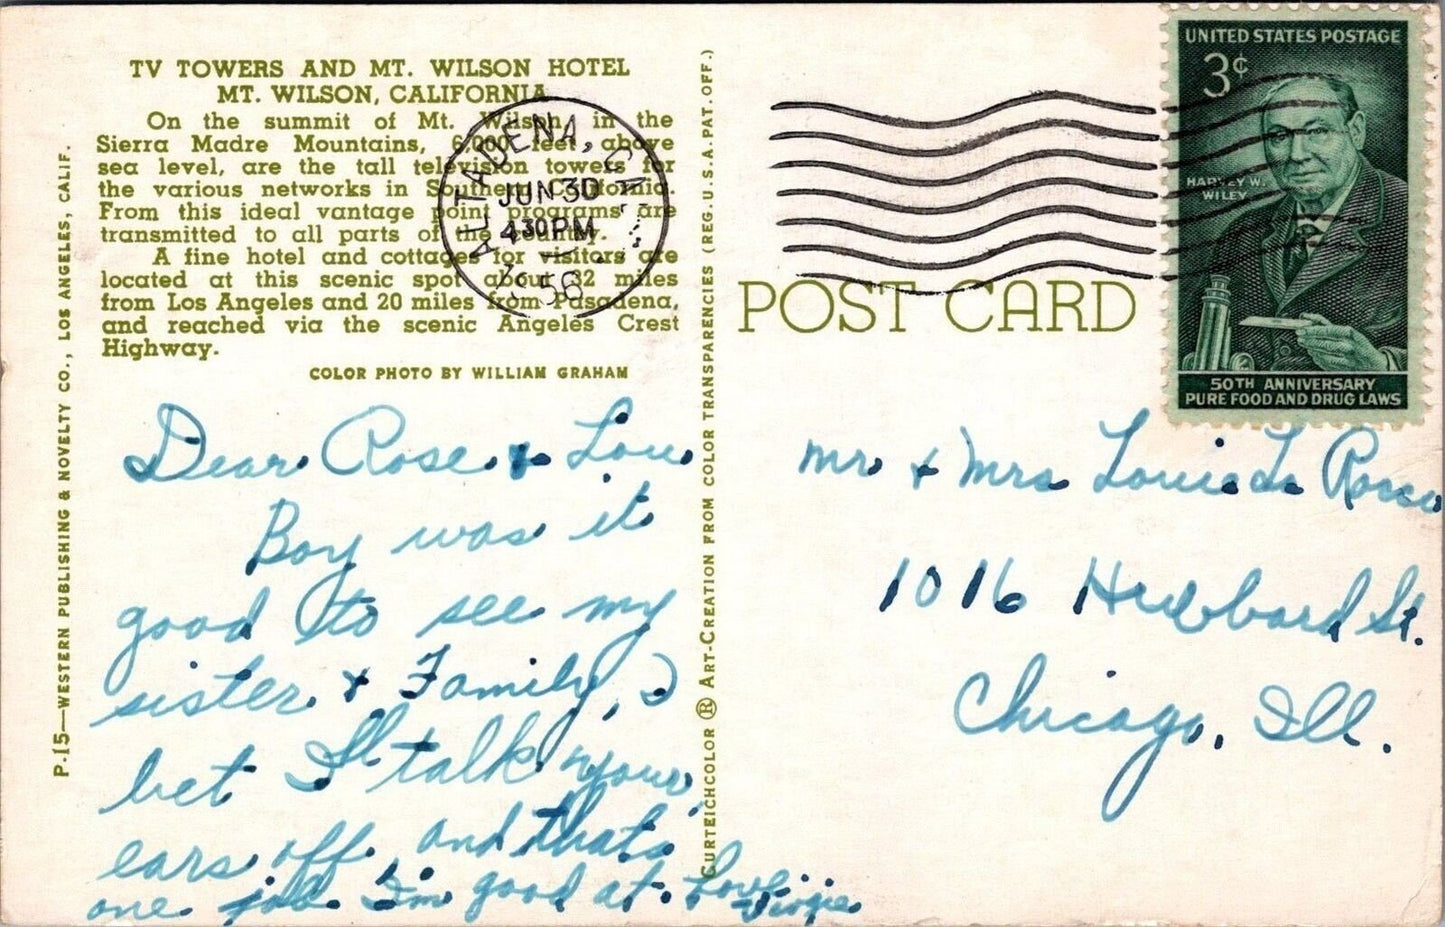 TV TOWERS AND MT. WILSON HOTEL
MT. WILSON, CALIFORNIA
On the summit of Mt. Wilson, in the
Sierra Madre Mountains, 6,000 feet above
sea level, are the tall television towers for
the various networks in Southern California.
From this ideal vantage point programs are
transmitted to all parts of the country.
A fine hotel and cottages for visitors are
located at this scenic spot about 32 miles
from Los Angeles and 20 miles from Pasadena,
and reached via the scenic Angeles Crest
Highway.
COLOR PHOTO BY WILLIAM GRAHAM
P-15—WESTERN PUBLISHING & NOVELTY CO., LOS ANGELES, CALIF.
Dear Rose & Lou
Boy was it
good to see my
sister & Family, I
bet I'll talk your
ears off, and thats
one job I'm good at. Love Virgie
CURTEICHCOLOR ® ART-CREATION FROM COLOR TRANSPARENCIES (REG. U.S.A. PAT. OFF.)
ALTADENA, CALIF.
JUN 30
4 30 PM
1956
POST CARD
UNITED STATES POSTAGE
3¢
HARVEY W.
WILEY
50TH ANNIVERSARY
PURE FOOD AND DRUG LAWS
Mr & Mrs Louis La Rocco
1016 Hubbard St.
Chicago, Ill.